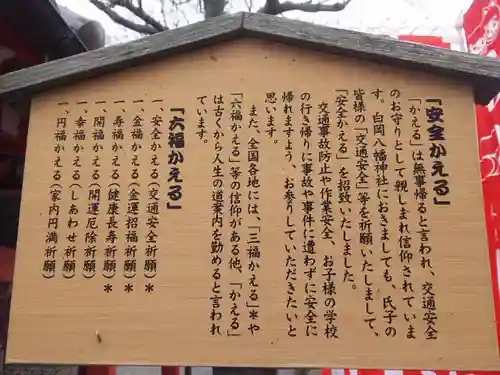 「安全かえる」
「かえる」は無事帰ると言われ、交通安全
のお守りとして親しまれ信仰されていま
す。白岡八幡神社におきましても、氏子の
皆様の「交通安全」等を祈願いたしまして、
「安全かえる」を招致いたしました。
交通事故防止や作業安全、お子様の学校
の行き帰りに事故や事件に遭わずに安全に
帰れますよう、お参りしていただきたいと
思います。
また、全国各地には、「三福かえる」＊や
「六福かえる」等の信仰がある他、「かえる」
は古くから人生の道案内を勤めると言われ
ています。
「六福かえる」
一、安全かえる（交通安全祈願）＊
一、金福かえる（金運招福祈願）＊
一、寿福かえる（健康長寿祈願）＊
一、開福かえる（開運厄除祈願）
一、幸福かえる（しあわせ祈願）
一、円福かえる（家内円満祈願）